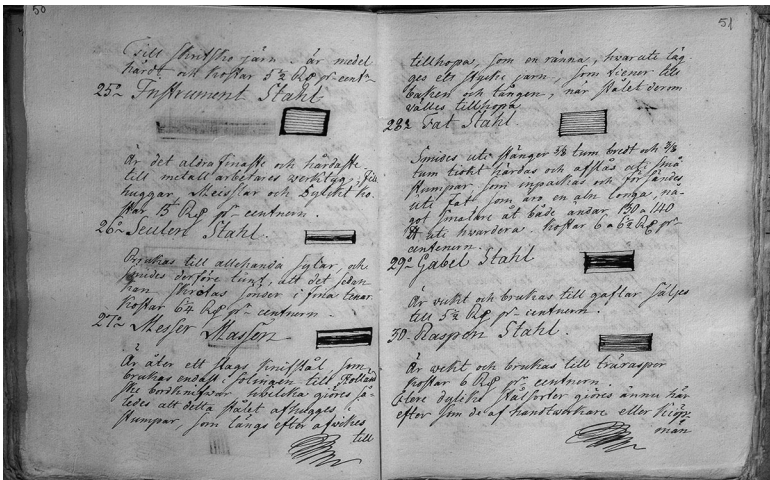 50
Till skritske järn. är medel
hårdt och kostar 5½ R pr centn
25o Instrument Stahl
Är det aldrafinaste och hårdaste
till metall arbetares werktyg,
huggar, Meisslar och dylikt ko-
star 15 R pr centnern.
26o Seulen Stahl.
Brukas till allehanda sylar, och
smides derföre tunt, att det sedan
kan skrotas sönder i fina tenar
kostar 6¼ R pr centnern.
27o Messer Massen
Är åter ett slags knifstål, som
brukas endast i Solingen till Holländ
ske bordknifwar, hvilcka giöres så-
ledes att detta stålet afhugges i
stumpar, som långs efter afwikes
till
51
tillhopa, som en ränna, hvarute läg-
ges ett stycke jarn, som tiener till
backen och tången, när stålet derom
välles tillhopa
28o Fat Stahl.
Smides uti stänger ⅜ tum bredt och ⅜
tum tiokt härdas och afslås uti små
stumpar, som inpackas och försändes
uti Fatt som äro en aln longa, nå-
got smalare åt både ändar 130 a 140
uti hvardera. kostar 6 a 6½ R pr
centenern
29o Gabel Stahl
Är vekt och brukas till gaflar säljes
till 5½ R pr centnern.
30. Raspen Stahl.
Är wekt och brukas till trärasper
kostar 6 R pr centnern.
flere dylika stålsorter giöres ännu här
efter som de af handtwerkare eller kiöp
män